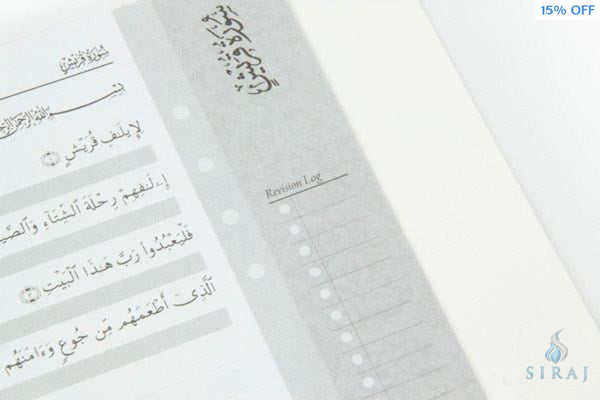 15% OFF
سُورَةُ قُرَيْشٍ
سُورَةُ قُرَيْشٍ
بِسْمِ اللَّهِ الرَّحْمَٰنِ
لِإِيلَٰفِ قُرَيْشٍ ١
إِۦلَٰفِهِمْ رِحْلَةَ الشِّتَآءِ
فَلْيَعْبُدُوا۟ رَبَّ هَٰذَا الْبَيْتِ ٣
الَّذِىٓ أَطْعَمَهُم مِّن جُوعٍ وَءَامَنَهُم
Revision Log
SIRAJ